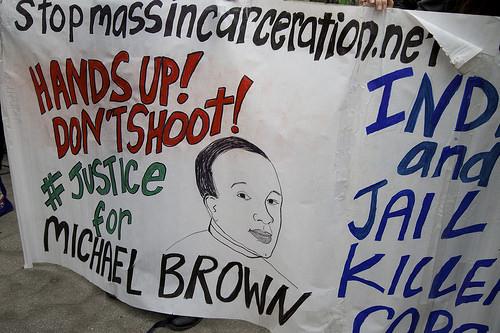 stopmassincarceration.net
HANDS UP!
DON'T SHOOT!
# JUSTICE
for
MICHAEL BROWN
IND
and
JAIL
KILLE
COPS